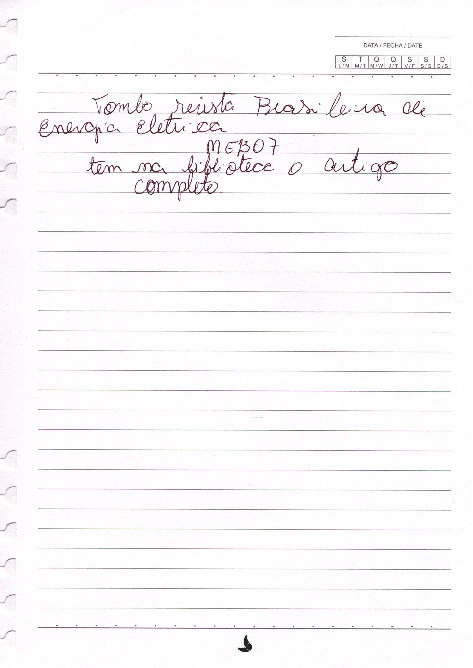 DATA / FECHA / DATE
S T Q Q S S D
L/M M/T M/W J/T V/F S/S D/S
Tombo revista Brasileira de
Energia Eletrica
MEB07
tem na biblioteca o artigo
completo